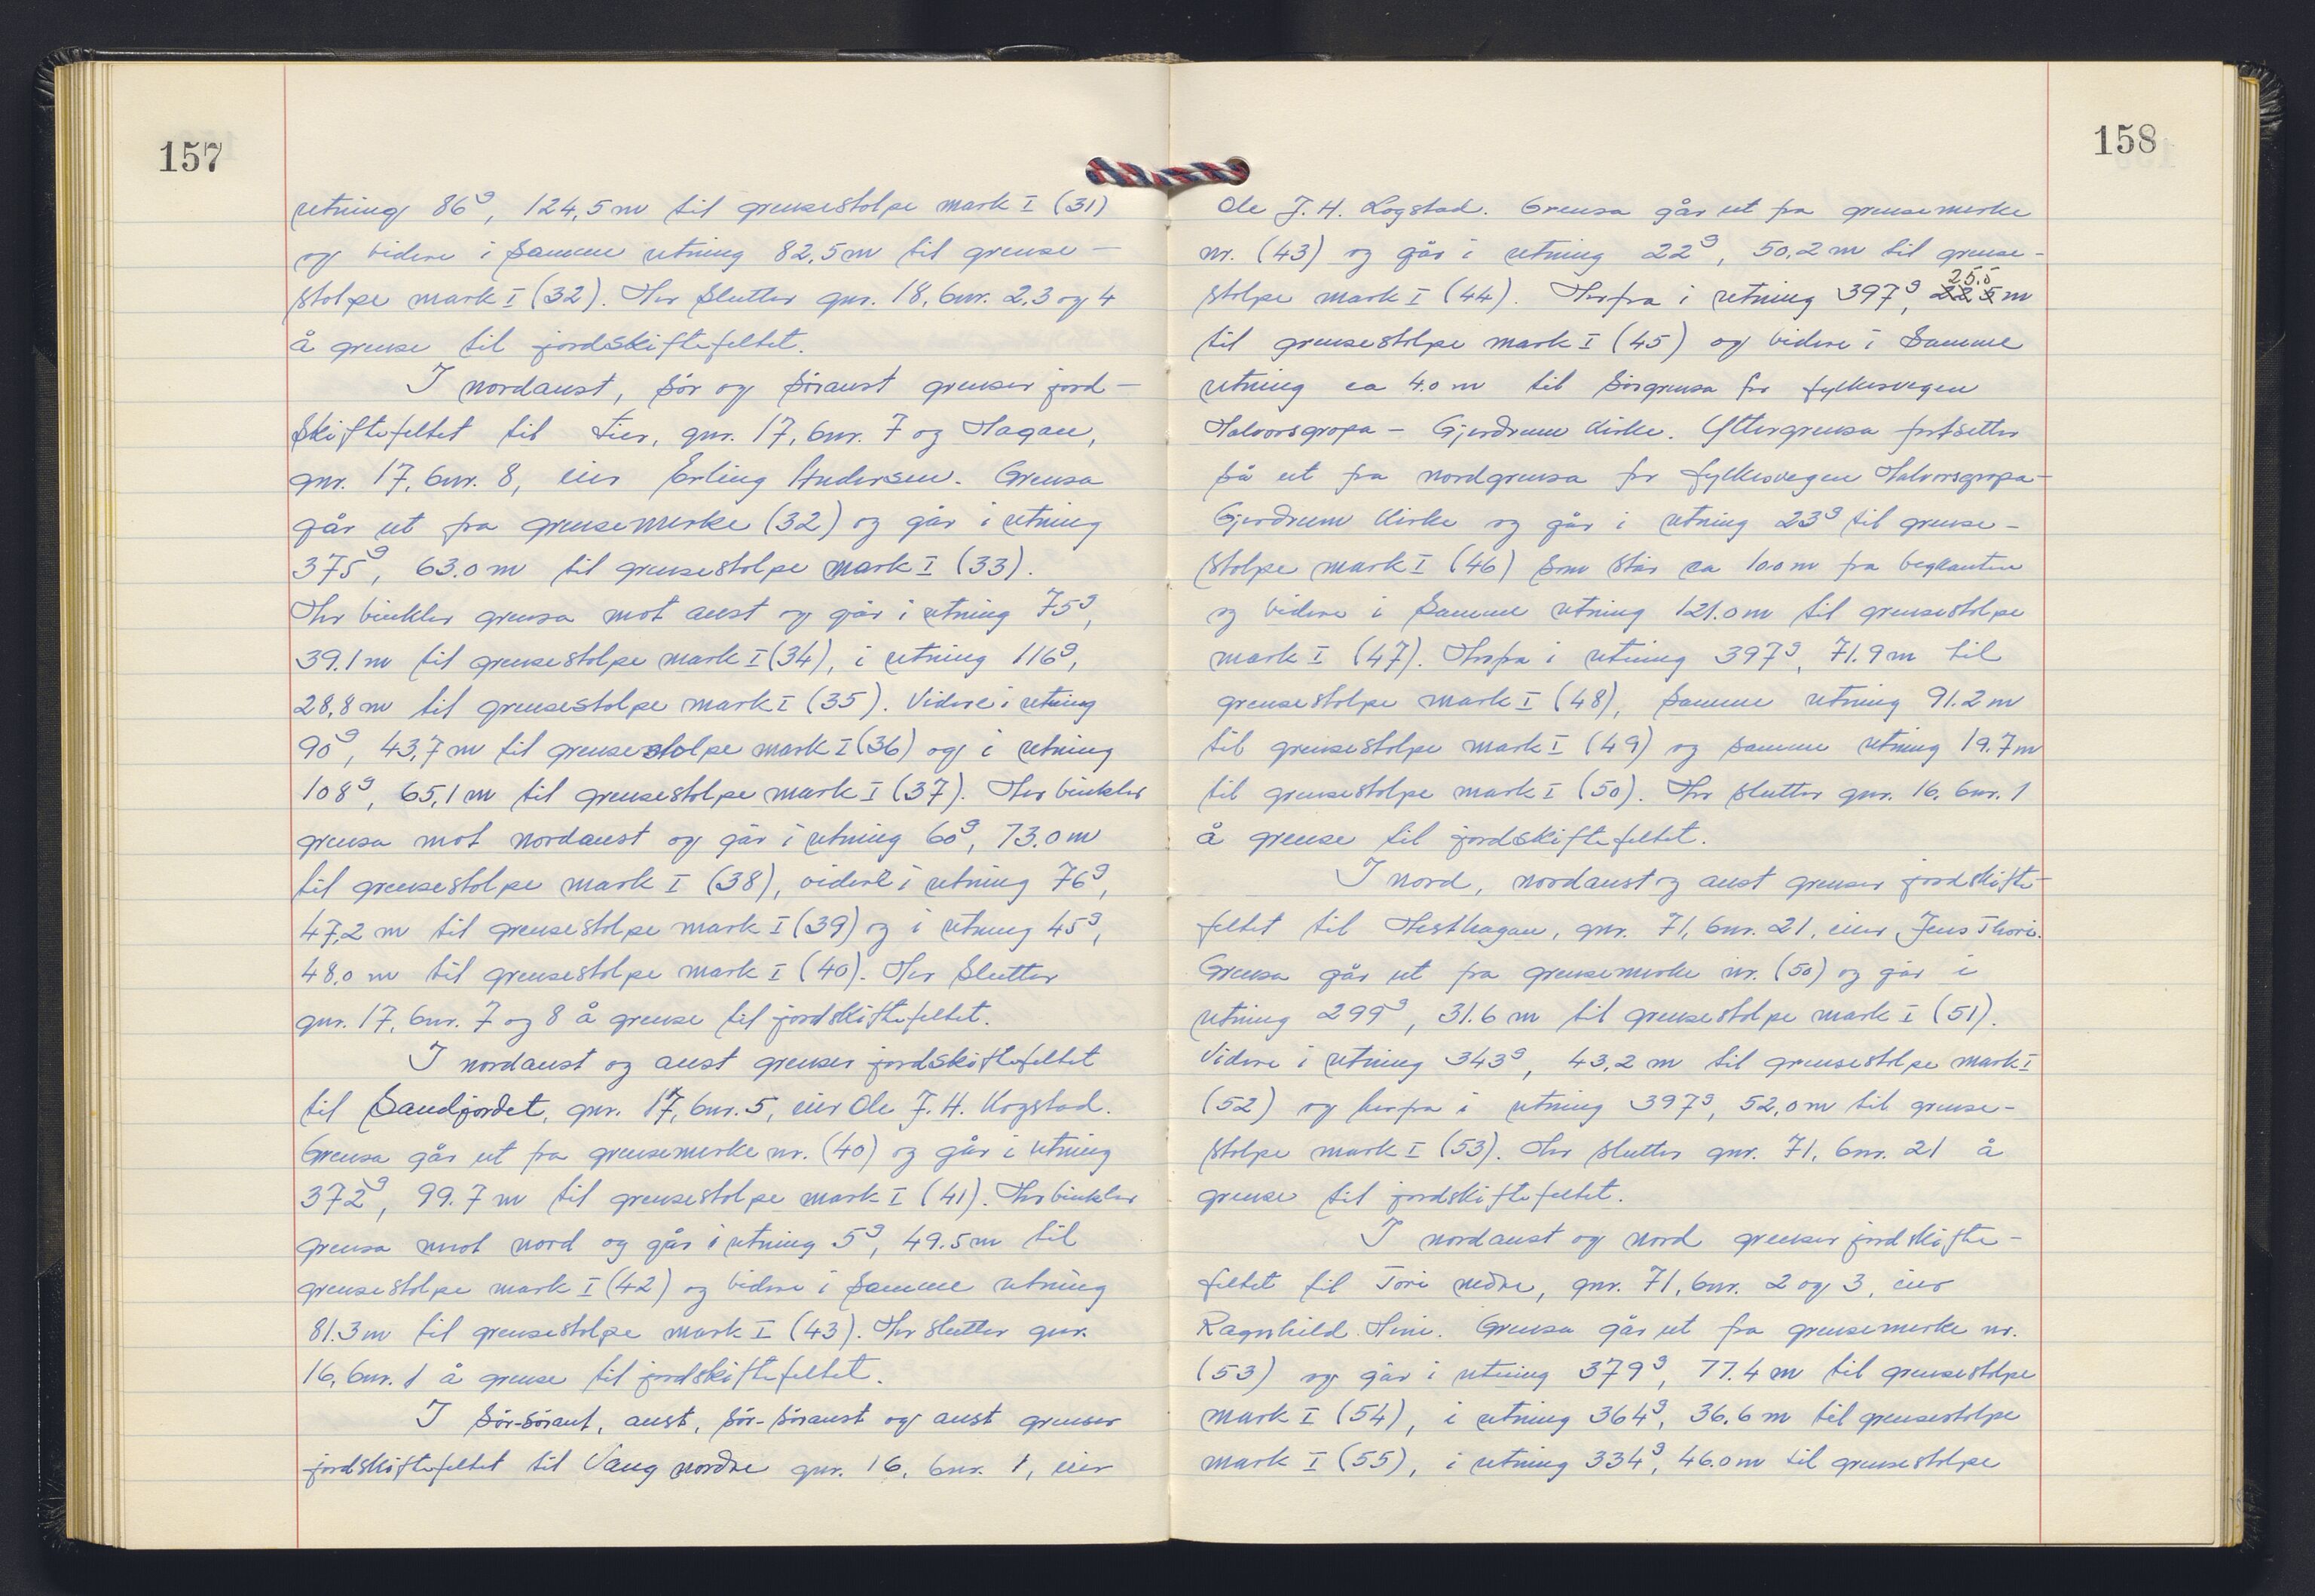 157
retning 86g, 124,5 m til grensestolpe mark I (31)
og videre i samme retning 82,5 m til grense-
stolpe mark I (32). Her slutter gnr. 18, bnr. 2,3 og 4
å grense til jordskiftefeltet.
I nordaust, sør og søraust grenser jord-
skiftefeltet til Lier, gnr. 17, bnr. 7 og Hagan,
gnr. 17, bnr. 8, eier Erling Andersen. Grensa
går ut fra grensemerke (32) og går i retning
375g, 63.0 m til grensestolpe mark I (33).
Her vinkler grensa mot aust og går i retning 75g,
39.1 m til grensestolpe mark I (34), i retning 116g,
28,8 m til grensestolpe mark I (35). Videre i retning
90g, 43,7 m til grensestolpe mark I (36) og i retning
108g, 65,1 m til grensestolpe mark I (37). Her vinkler
grensa mot nordaust og går i retning 60g, 73.0 m
til grensestolpe mark I (38), videre i retning 76g,
47,2 m til grensestolpe mark I (39) og i retning 45g,
48,0 m til grensestolpe mark I (40). Her slutter
gnr. 17, bnr. 7 og 8 å grense til jordskiftefeltet.
I nordaust og aust grenser jordskiftefeltet
til Sandjordet, gnr. 17, bnr. 5, eier Ole J. H. Kogstad.
Grensa går ut fra grensemerke nr. (40) og går i retning
372g, 99.7 m til grensestolpe mark I (41). Her vinkler
grensa mot nord og går i retning 5g, 49.5 m til
grensestolpe mark I (42) og videre i samme retning
81.3 m til grensestolpe mark I (43). Her slutter gnr.
16, bnr. 1 å grense til jordskiftefeltet.
I sør-søraut, aust, sør-søraust og aust grenser
jordskiftefeltet til Vang nordre gnr. 16, bnr. 1, eier
158
Ole J. H. Kogstad. Grensa går ut fra grensemerke
nr. (43) og går i retning 22g, 50.2 m til grense-
stolpe mark I (44). Herfra i retning 397g, 25.5 m
til grensestolpe mark I (45) og videre i samme
retning ca 4.0 m til sørgrensa for fylkesvegen
Halvorsgropa - Gjerdrum kirke. Yttergrensa fortsetter
så ut fra nordgrensa for fylkesvegen Halvorsgropa-
Gjerdrum kirke og går i retning 23g til grense-
stolpe mark I (46) som står ca 10.0 m fra vegkanten
og videre i samme retning 121.0 m til grensestolpe
mark I (47). Herfra i retning 397g, 71.9 m til
grensestolpe mark I (48), samme retning 91.2 m
til grensestolpe mark I (49) og samme retning 19.7 m
til grensestolpe mark I (50). Her slutter gnr. 16, bnr. 1
å grense til jordskiftefeltet.
I nord, nordaust og aust grenser jordskifte-
feltet til Hesthagan, gnr. 71, bnr. 21, eier Jens Thori.
Grensa går ut fra grensemerke nr. (50) og går i
retning 299g, 31.6 m til grensestolpe mark I (51).
Videre i retning 343g, 43,2 m til grensestolpe mark I
(52) og herfra i retning 397g, 52,0 m til grense-
stolpe mark I (53). Her slutter gnr. 71, bnr. 21 å
grense til jordskiftefeltet.
I nordaust og nord grenser jordskifte-
feltet til Tori nedre, gnr. 71, bnr. 2 og 3, eier
Ragnhild Heni. Grensa går ut fra grensemerke nr.
(53) og går i retning 379g, 77.4 m til grensestolpe
mark I (54), i retning 364g, 36.6 m til grensestolpe
mark I (55), i retning 334g, 46.0 m til grensestolpe